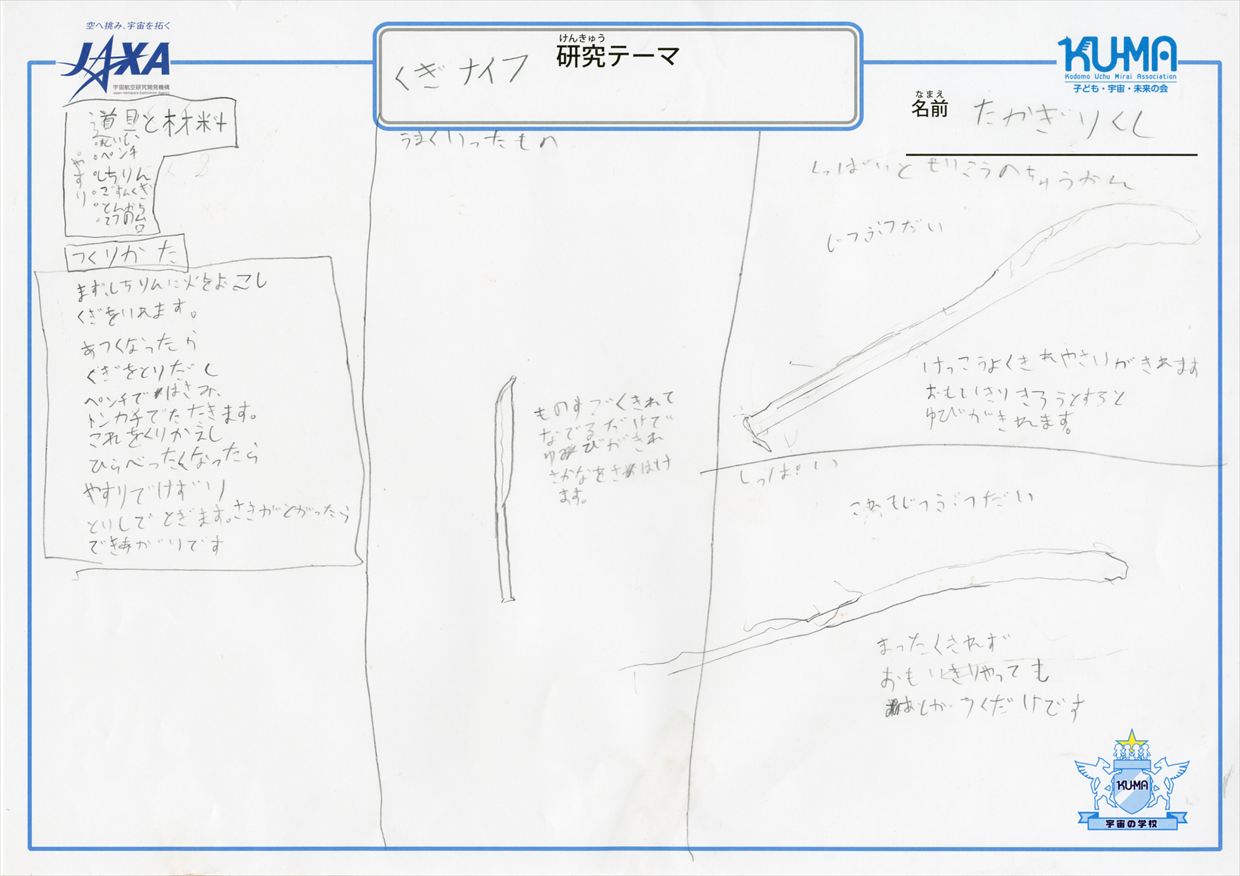 空へ挑み、宇宙を拓く
JAXA
宇宙航空研究開発機構
Japan Aerospace Exploration Agency
けんきゅう
研究テーマ
くぎナイフ
KU-MA
Kodomo Uchu Mirai Association
子ども・宇宙・未来の会
なまえ
名前
たかぎりくし
道具と材料
といし
ペンチ
やすり
しちりん
ごすんくぎ
とんかち
つくりかた
まず、しちりんに火をおこし
くぎをいれます。
あつくなったら
くぎをとりだし
ペンチではさみ、
トンカチでたたきます。
これをくりかえし
ひらべったくなったら
やすりでけずり
といしでとぎます。さきがとがったら
できあがりです
うまくいったもの
ものすごくきれて
なでるだけで
ゆびがきれ
さかなをさばけ
ます。
しっぱいとせいこうのちゅうかん
じつぶつだい
けっこうよくきれやさいがきれます
おもいきりきろうとすると
ゆびがきれます。
しっぱい
これもじつぶつだい
まったくきれず
おもいきりやっても
あとがつくだけです
KU-MA
宇宙の学校